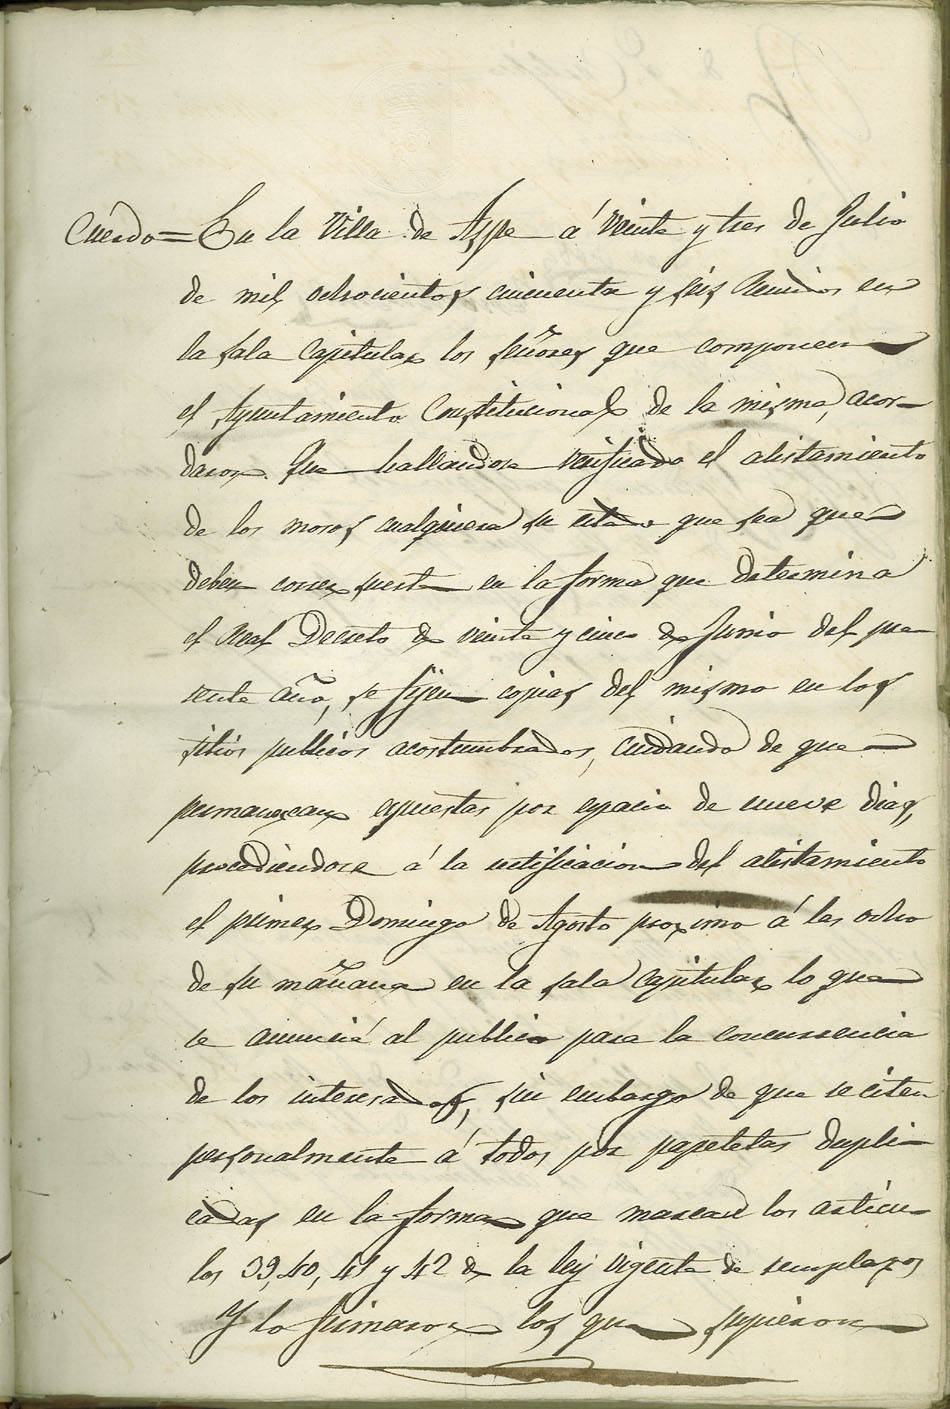 Cuerdo = En la Villa de Aspe á veinte y tres de Julio
de mil ochocientos cincuenta y seis Reunidos en
la sala Capitular los señores que componen
el Ayuntamiento Constitucional de la misma, acor-
daron. Que hallandose verificado el alistamiento
de los mosos cualquiera su estado que sea que
deben correr suerte en la forma que determina
el Real Decreto de veinte y cinco de Junio del pre
sente año, se fijen copias del mismo en los
sitios publicos acostumbrados, cuidando de que
permanezcan espuestas por espacio de nueve dias,
procediendose á la rectificacion del alistamiento
el primer Domingo de Agosto proximo á las ocho
de su mañana en la sala capitular lo que
se anuncié al publico para la concurrencia
de los interesados, sin embargo de que se citen
personalmente á todos por papeletas dupli-
cadas en la forma que marcan los articu-
los 39, 40, 41 y 42 de la ley vigente de remplazos
Y lo firmaron los que supieron